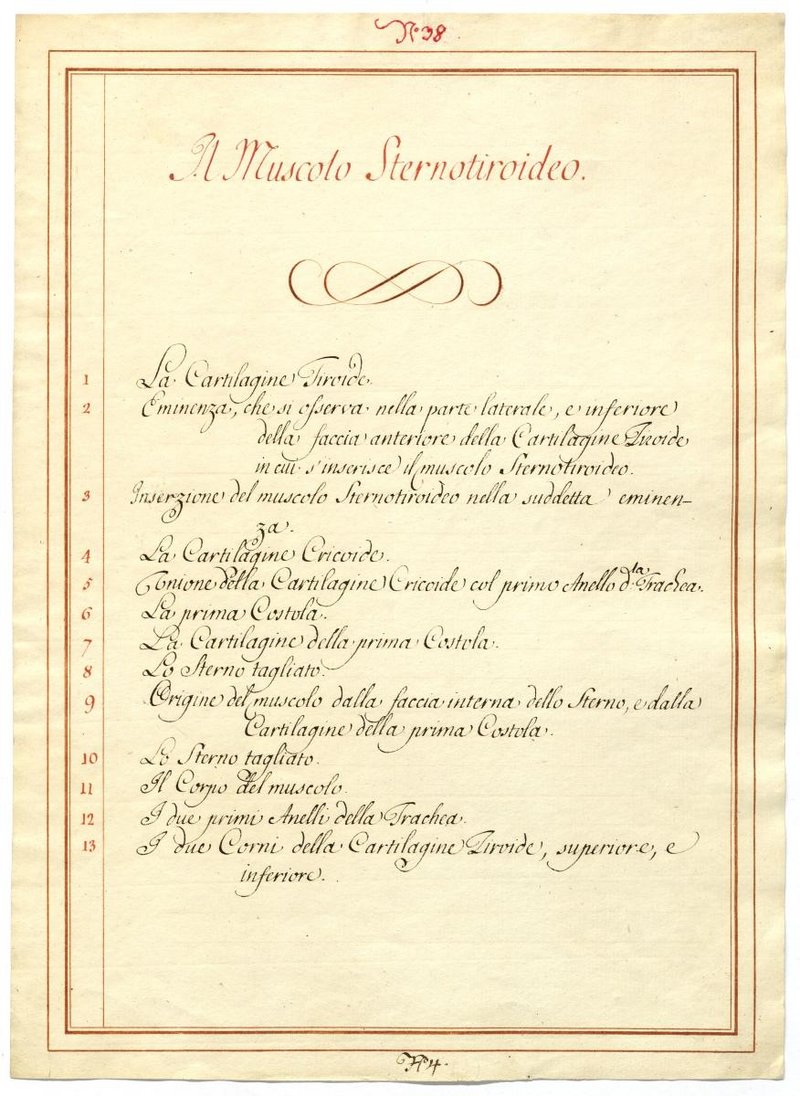 N.º 38
Il Muscolo Sternotiroideo.
1 La Cartilagine Tiroide.
2 Eminenza, che si osserva nella parte laterale, e inferiore
della faccia anteriore della Cartilagine Tiroide
in cui s'inserisce il muscolo Sternotiroideo.
3 Inserzione del muscolo Sternotiroideo nella suddetta eminen-
za.
4 La Cartilagine Cricoide.
5 Unione della Cartilagine Cricoide col primo Anello d.la Trachea.
6 La prima Costola.
7 La Cartilagine della prima Costola.
8 Lo Sterno tagliato.
9 Origine del muscolo dalla faccia interna dello Sterno, e dalla
Cartilagine della prima Costola.
10 Lo Sterno tagliato.
11 Il Corpo del muscolo.
12 I due primi Anelli della Trachea.
13 I due Corni della Cartilagine Tiroide, superiore, e
inferiore.